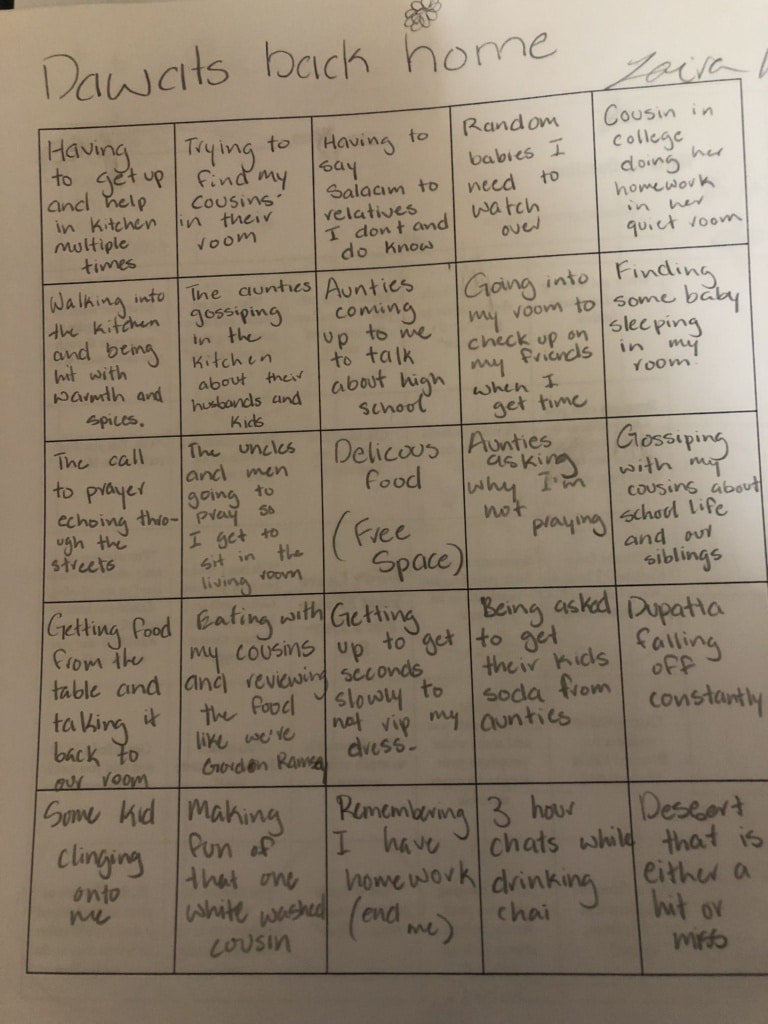 Dawats back home
Zaira
Having
to get up
and help
in kitchen
multiple
times
Trying to
find my
cousins
in their
room
Having to
say
Salaam to
relatives
I don't and
do know
Random
babies I
need to
watch
over
Cousin in
college
doing her
homework
in her
quiet room
Walking into
the kitchen
and being
hit with
warmth and
spices.
The aunties
gossiping
in the
kitchen
about their
husbands and
kids
Aunties
coming
up to me
to talk
about high
school
Going into
my room to
check up on
my friends
when I
get time
Finding
some baby
sleeping
in my
room
The call
to prayer
echoing thro-
ugh the
streets
The uncles
and men
going to
pray so
I get to
sit in the
living room
Delicous
food
(Free
Space)
Aunties
asking
why I'm
not praying
Gossiping
with my
cousins about
school life
and our
siblings
Getting food
from the
table and
taking it
back to
our room
Eating with
my cousins
and reviewing
the food
like we're
Gordon Ramsay
Getting
up to get
seconds
slowly to
not rip my
dress.
Being asked
to get
their kids
soda from
aunties
Dupatta
falling
off
constantly
Some kid
clinging
onto
me
Making
fun of
that one
white washed
cousin
Remembering
I have
homework
(end me)
3 hour
chats while
drinking
chai
Dessert
that is
either a
hit or
miss